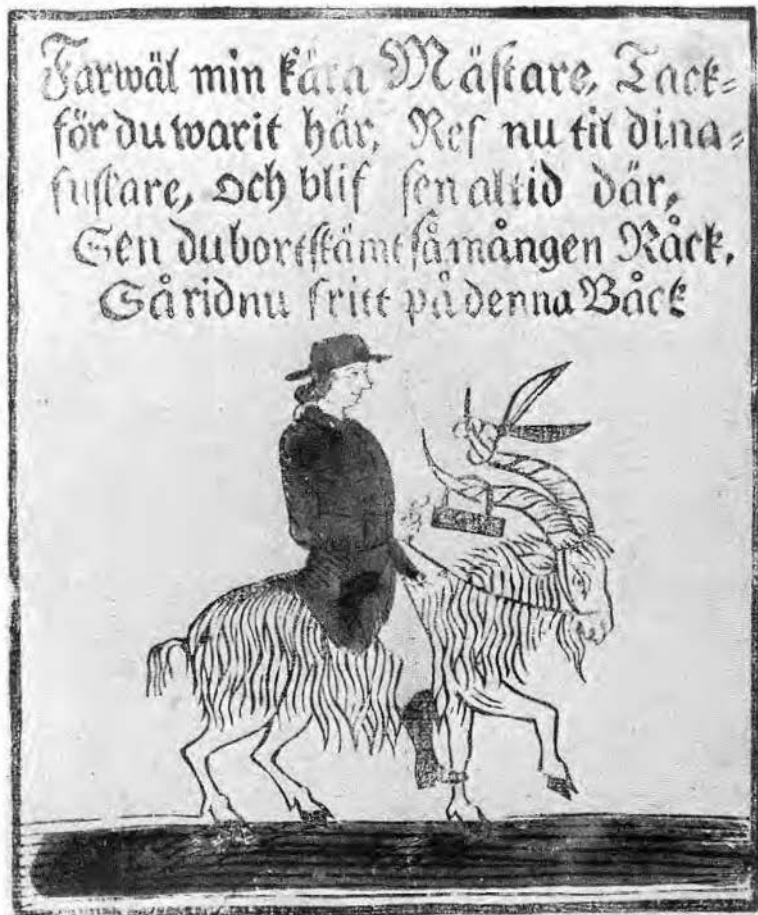 Farwäl min kära Mästare, Tack=
för du warit här, Res nu til dina=
fuskare, och blif sen altid där,
Sen du bortskämt så mången Råck,
Så rid nu fritt på denna Båck